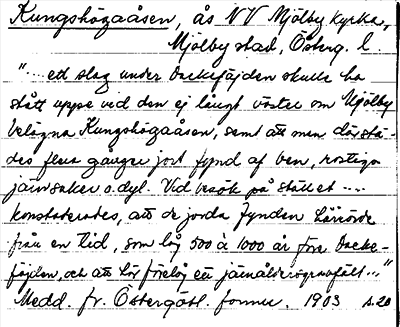 Kungshögaåsen, ås NV Mjölby kyrka,
Mjölby stad, Österg. l.
"... ett slag under Dackefäjden skulle ha
stått uppe vid den ej långt väster om Mjölby
belägna Kungshögaåsen, samt att man därstä-
des flera gånger gjort fynd af ben, rostiga
järnsaker o.dyl. Vid besök på stället ....
konstaterades, att de jorda fynden härrörde
från en tid, som låg 500 à 1000 år före Dacke-
fäjden, och att här förelåg ett järnåldersgravfält..."
Medd. fr. Östergötl. fornm. 1903 s.20